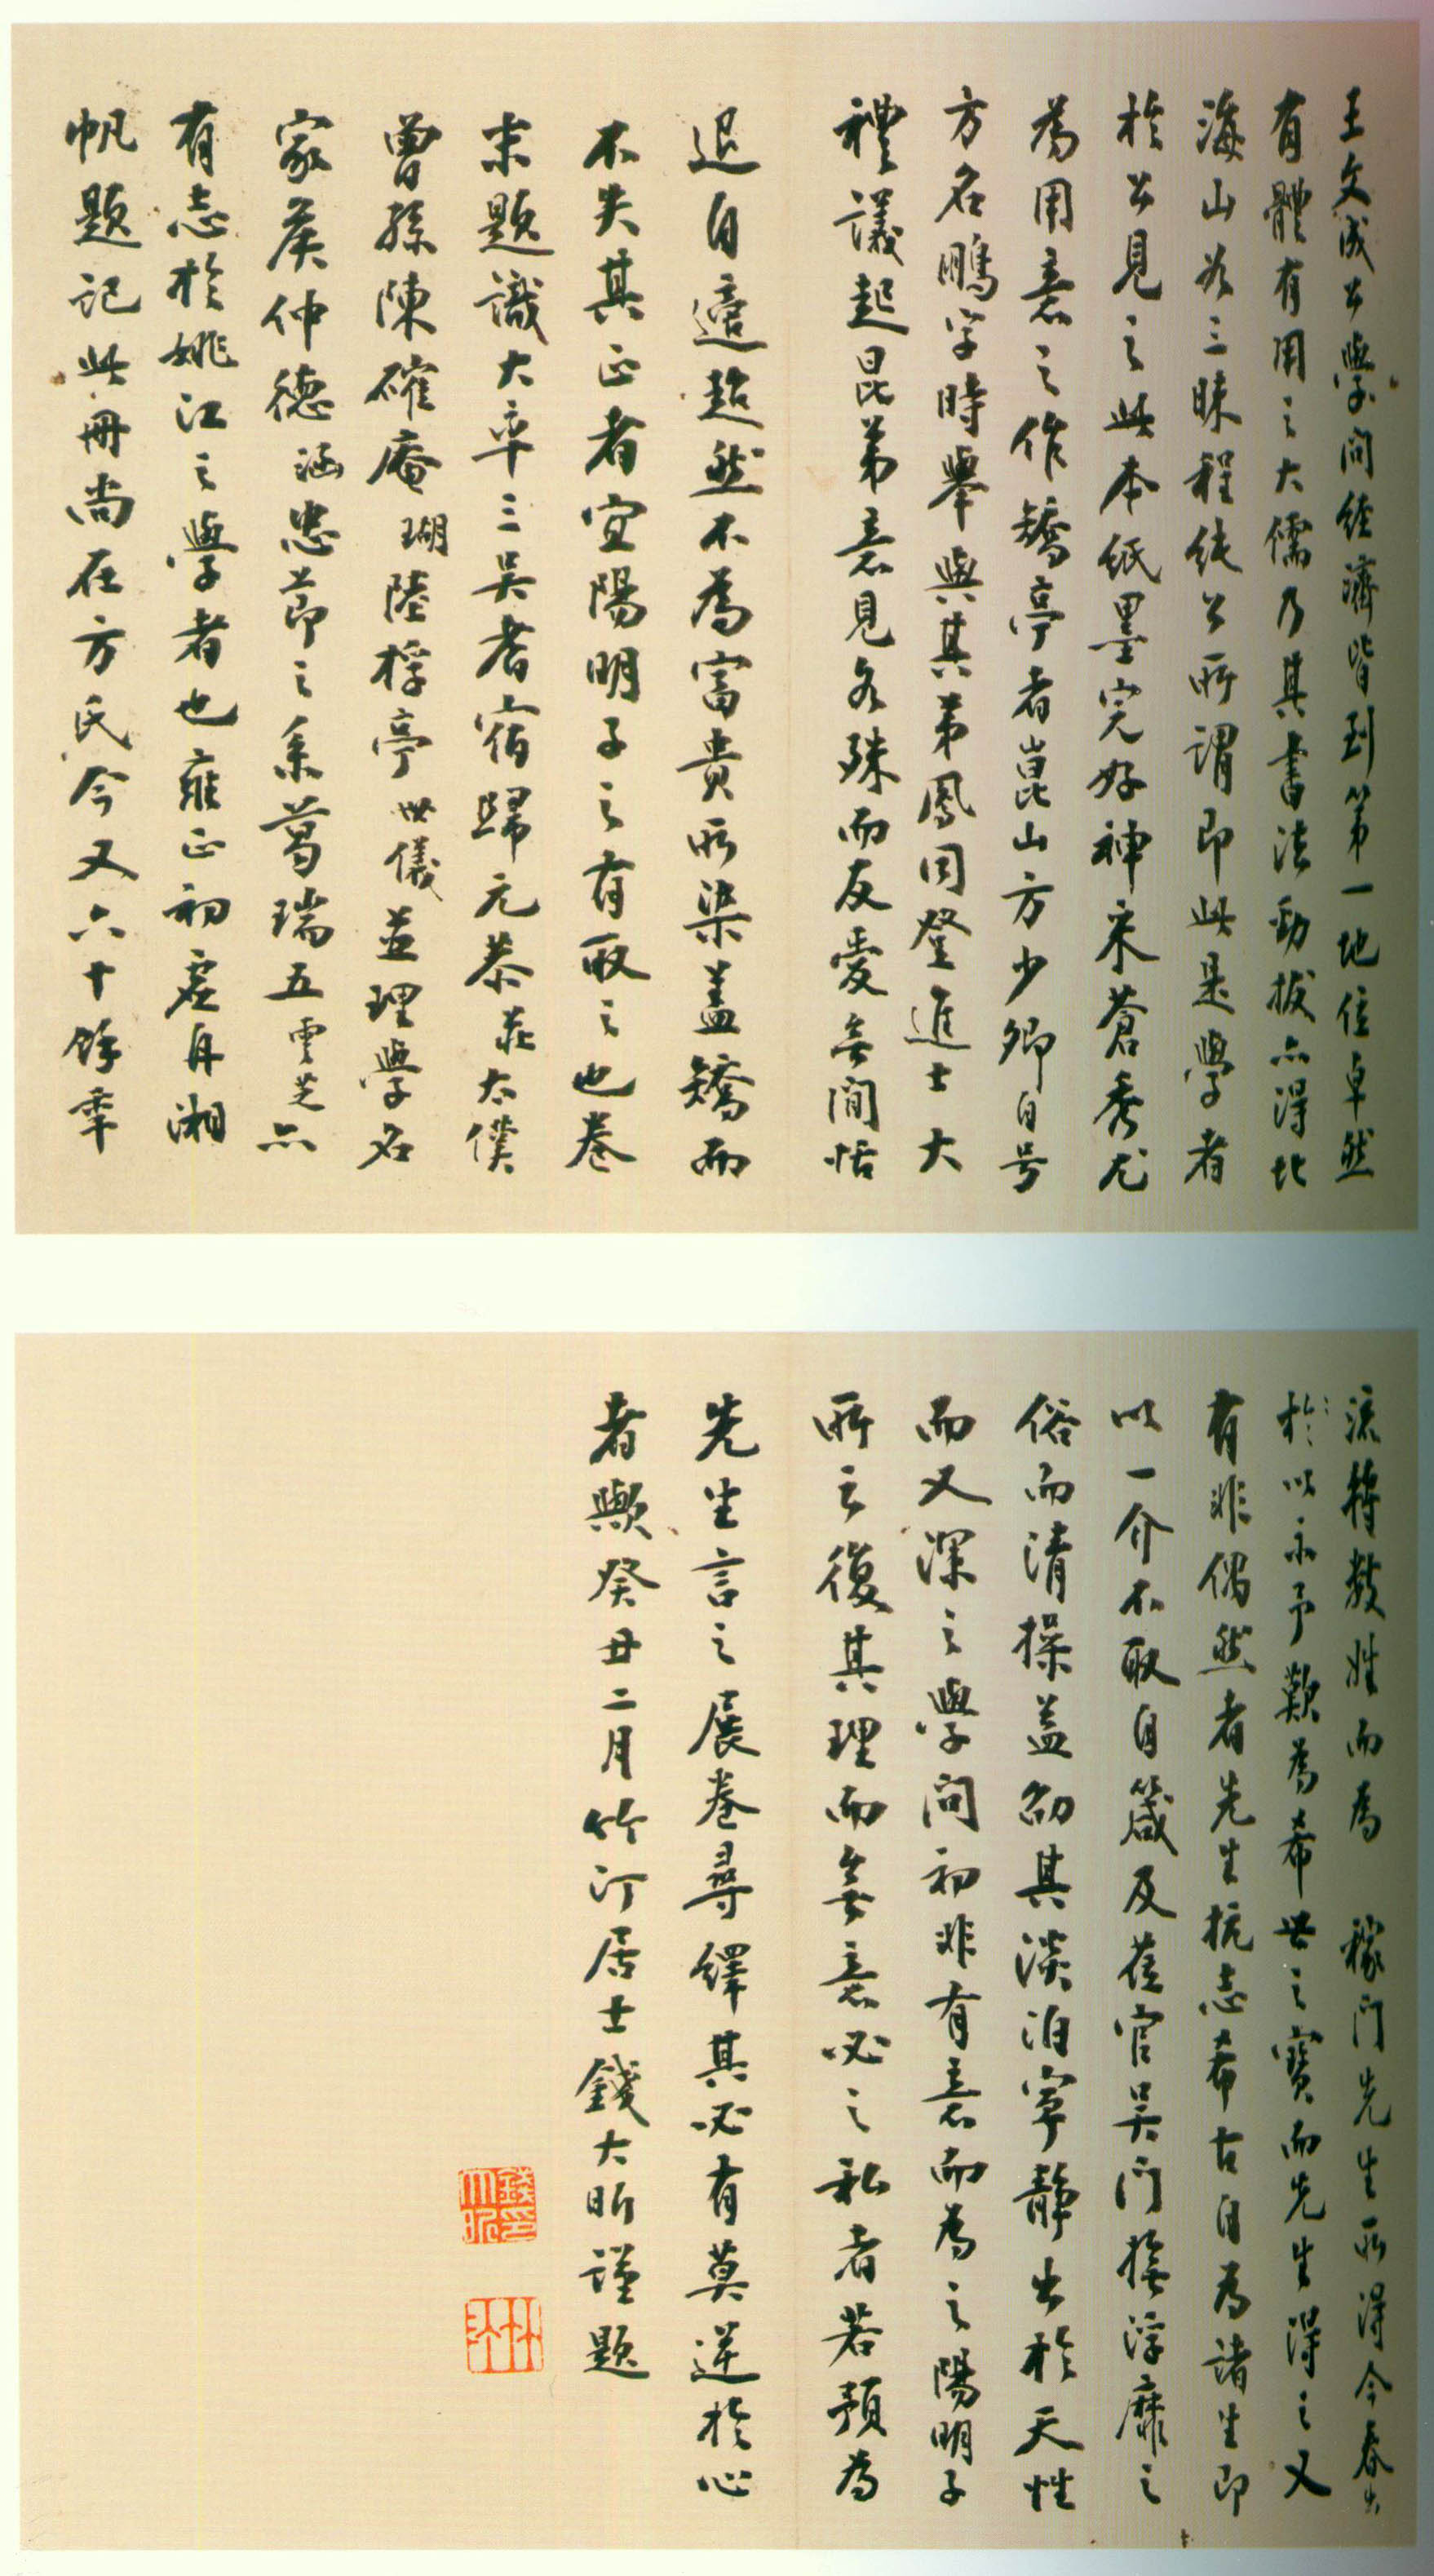 王文成公學問經濟皆到第一地位卓然
有體有用之大儒乃其書法勁拔亦得北
海山谷三昧程純公所謂即此是學者
於公見之此本紙墨完好神采蒼秀尤
為用意之作矯亭者崑山方少卿自号
方名鵬字時舉與其弟鳳同登進士大
禮議起昆弟意見各殊而友愛無間恬
退自適超然不為富貴所染蓋矯而
不失其正者宜陽明子之有取之也卷
末題識大率三吳耆宿歸元恭莊太僕
曾孫陳確庵瑚陸桴亭世儀並理學名
家侯仲德涵忠節之系葛瑞五雲芝亦
有志於姚江之學者也雍正初虛舟湘
帆題記此冊尚在方氏今又六十餘年
流轉數姓而為 稼門先生所得今春出
於以示予歎為希世之寶而先生得之又
有非偶然者先生抗志希古自為諸生即
以一介不取自箴及蒞官吳門撫浮靡之
俗而清操益勁其淡泊寧靜出於天性
而又深之學問初非有意而為之陽明子
所云復其理而無意必之私者若預為
先生言之展卷尋繹其必有莫逆於心
者歟癸丑二月竹汀居士錢大昕謹題
錢大昕印
竹汀